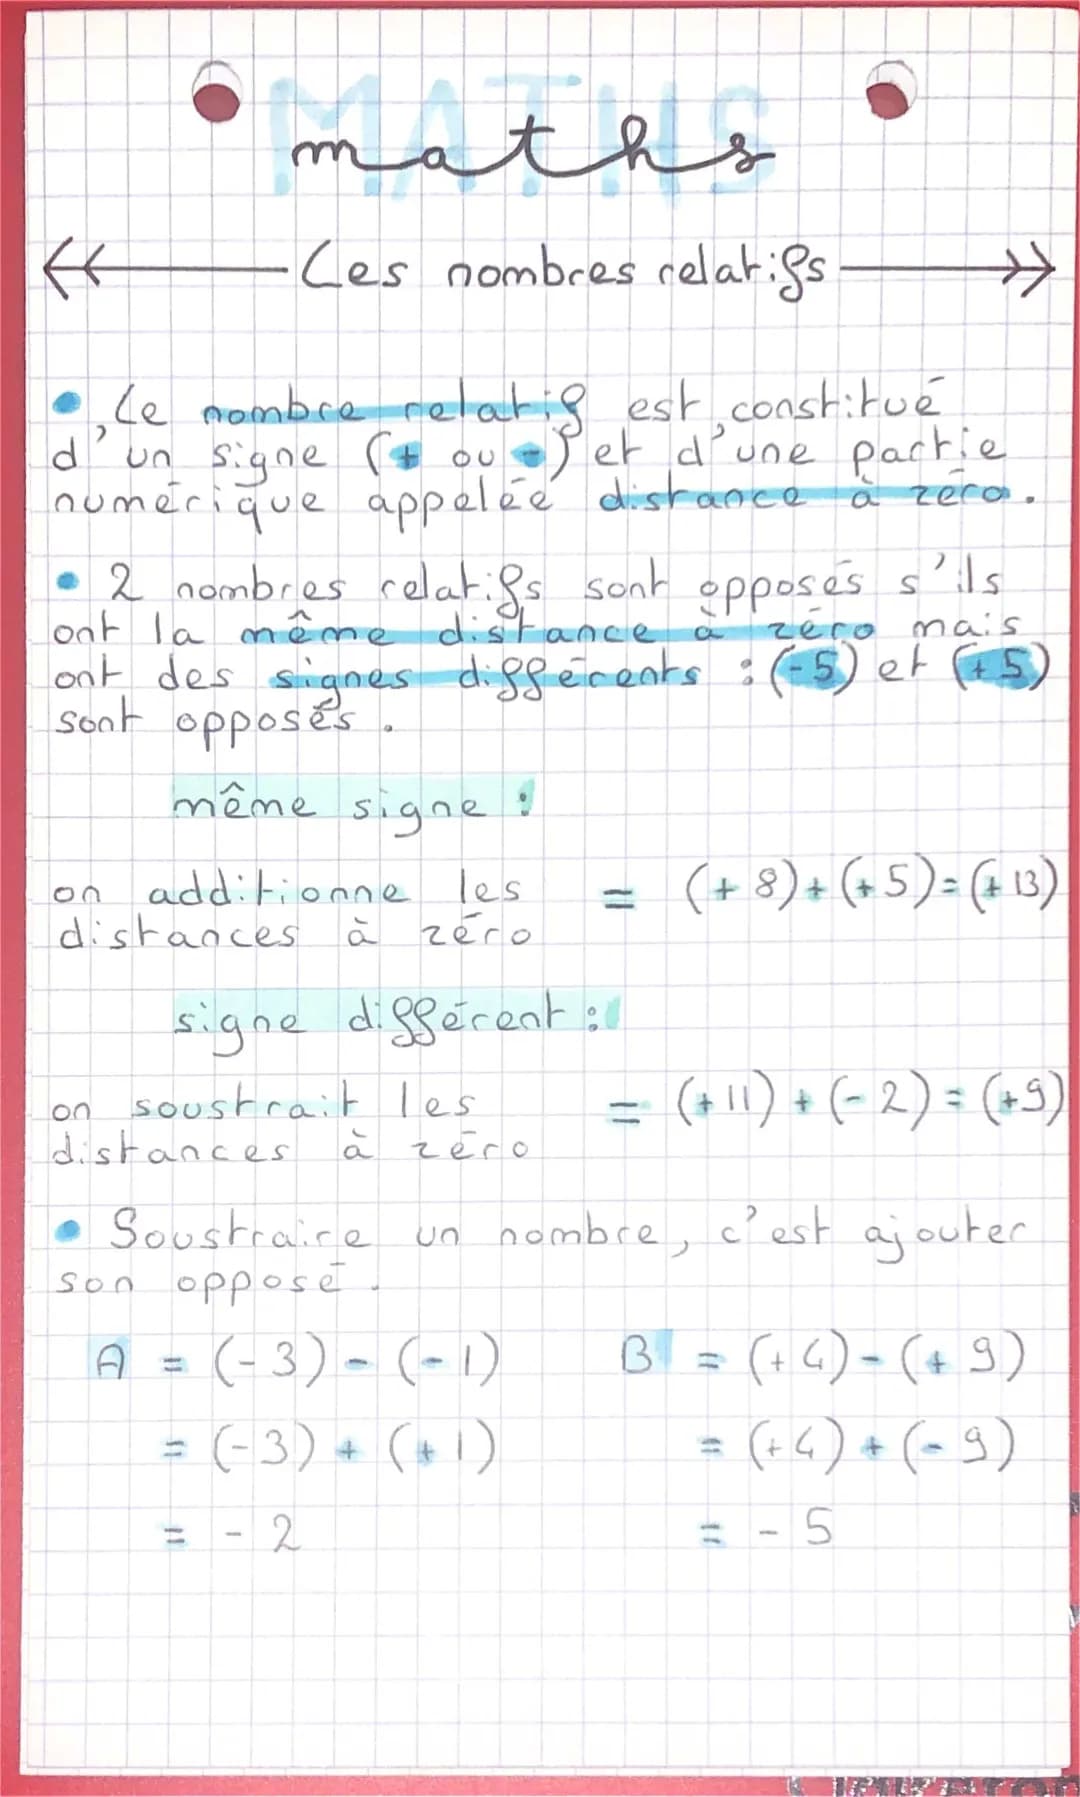 MATHS
maths
Les nombres relatifs
• Le nombre relatif est constitué
d'un signe (+ ou -) et d'une partie
numérique appelée distance à zéro.
• 2 nombres relatifs sont opposés s'ils
ont la même distance à zéro mais
ont des signes différents : (-5) et (+5)
sont opposés.
même signe :
on additionne les = (+8)+(+5)=(+13)
distances à zéro
signe différent :
on soustrait les = (+11)+(-2)=(+9)
distances à zéro
• Soustraire un nombre, c'est ajouter
son opposé.
A = (-3)-(-1) B = (+4)-(+9)
= (-3)+(+1) = (+4)+(-9)
= -2 = -5